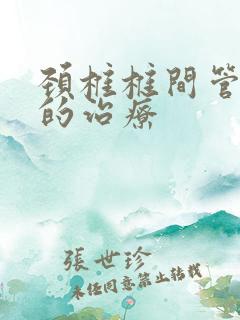 頚椎椎間管
的治療
張世珍
未经同意禁止转载